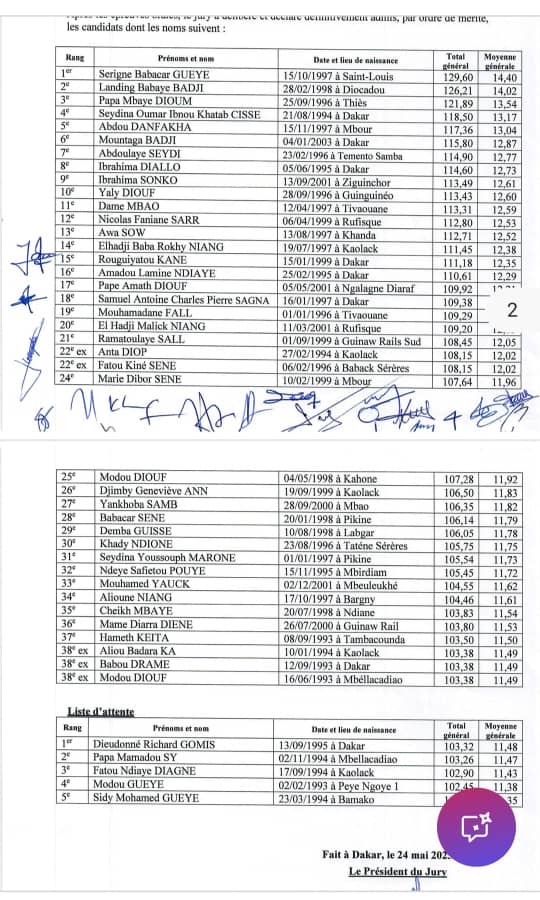 admis, par ordre de mérite,
les candidats dont les noms suivent :
Rang Prénoms et nom Date et lieu de naissance Total général Moyenne générale
1er Serigne Babacar GUEYE 15/10/1997 à Saint-Louis 129,60 14,40
2e Landing Babaye BADJI 28/02/1998 à Diocadou 126,21 14,02
3e Papa Mbaye DIOUM 25/09/1996 à Thiès 121,89 13,54
4e Seydina Oumar Ibnou Khatab CISSE 21/08/1994 à Dakar 118,50 13,17
5e Abdou DANFAKHA 15/11/1997 à Mbour 117,36 13,04
6e Mountaga BADJI 04/01/2003 à Dakar 115,80 12,87
7e Abdoulaye SEYDI 23/02/1996 à Temento Samba 114,90 12,77
8e Ibrahima DIALLO 05/06/1995 à Dakar 114,60 12,73
9e Ibrahima SONKO 13/09/2001 à Ziguinchor 113,49 12,61
10e Yaly DIOUF 28/09/1996 à Guinguinéo 113,43 12,60
11e Dame MBAO 12/04/1997 à Tivaouane 113,31 12,59
12e Nicolas Faniane SARR 06/04/1999 à Rufisque 112,80 12,53
13e Awa SOW 13/08/1997 à Khanda 112,71 12,52
14e Elhadji Baba Rokhy NIANG 19/07/1997 à Kaolack 111,45 12,38
15e Rouguiyatou KANE 15/01/1999 à Dakar 111,18 12,35
16e Amadou Lamine NDIAYE 25/02/1995 à Dakar 110,61 12,29
17e Pape Amath DIOUF 05/05/2001 à Ngalagne Diaraf 109,92
18e Samuel Antoine Charles Pierre SAGNA 16/01/1997 à Dakar 109,38
19e Mouhamadane FALL 01/01/1996 à Tivaouane 109,29
20e El Hadji Malick NIANG 11/03/2001 à Rufisque 109,20
21e Ramatoulaye SALL 01/09/1999 à Guinaw Rails Sud 108,45 12,05
22e ex Anta DIOP 27/02/1994 à Kaolack 108,15 12,02
22e ex Fatou Kiné SENE 06/02/1996 à Baback Sérères 108,15 12,02
24e Marie Dibor SENE 10/02/1999 à Mbour 107,64 11,96
2
25e Modou DIOUF 04/05/1998 à Kahone 107,28 11,92
26e Djimby Geneviève ANN 19/09/1999 à Kaolack 106,50 11,83
27e Yankhoba SAMB 28/09/2000 à Mbao 106,35 11,82
28e Babacar SENE 20/01/1998 à Pikine 106,14 11,79
29e Demba GUISSE 10/08/1998 à Labgar 106,05 11,78
30e Khady NDIONE 23/08/1996 à Taténe Sérères 105,75 11,75
31e Seydina Youssouph MARONE 01/01/1997 à Pikine 105,54 11,73
32e Ndeye Safietou POUYE 15/11/1995 à Mbirdiam 105,45 11,72
33e Mouhamed YAUCK 02/12/2001 à Mbeuleukhé 104,55 11,62
34e Alioune NIANG 17/10/1997 à Bargny 104,46 11,61
35e Cheikh MBAYE 20/07/1998 à Ndiane 103,83 11,54
36e Mame Diarra DIENE 26/07/2000 à Guinaw Rail 103,80 11,53
37e Hameth KEITA 08/09/1993 à Tambacounda 103,50 11,50
38e ex Aliou Badara KA 10/01/1994 à Kaolack 103,38 11,49
38e ex Babou DRAME 12/09/1993 à Dakar 103,38 11,49
38e ex Modou DIOUF 16/06/1993 à Mbéllacadiao 103,38 11,49
Liste d'attente
Rang Prénoms et nom Date et lieu de naissance Total général Moyenne générale
1er Dieudonné Richard GOMIS 13/09/1995 à Dakar 103,32 11,48
2e Papa Mamadou SY 02/11/1994 à Mbellacadiao 103,26 11,47
3e Fatou Ndiaye DIAGNE 17/09/1994 à Kaolack 102,90 11,43
4e Modou GUEYE 02/02/1993 à Peye Ngoye 1 102,45 11,38
5e Sidy Mohamed GUEYE 23/03/1994 à Bamako
Fait à Dakar, le 24 mai
Le Président du Jury